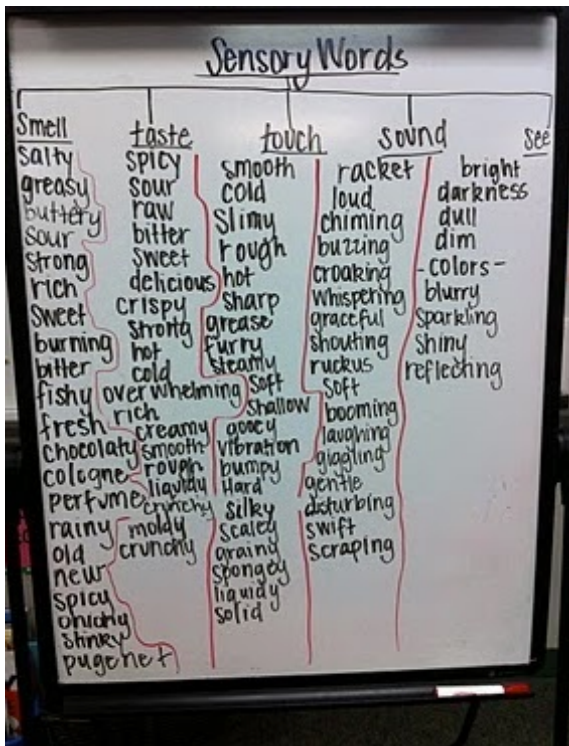 Sensory Words
Smell
salty
greasy
buttery
sour
strong
rich
sweet
burning
bitter
fishy
fresh
chocolaty
cologne
perfume
rainy
old
new
spicy
oniony
stinky
pugenet
taste
spicy
sour
raw
bitter
sweet
delicious
crispy
strong
hot
cold
overwhelming
rich
creamy
smooth
rough
liquidy
crunchy
moldy
crunchy
touch
smooth
cold
slimy
rough
hot
sharp
grease
furry
steamy
soft
shallow
gooey
vibration
bumpy
Hard
silky
scaley
grainy
spongey
liquidy
solid
sound
racket
loud
chiming
buzzing
croaking
whispering
graceful
shouting
ruckus
soft
booming
laughing
giggling
gentle
disturbing
swift
scraping
see
bright
darkness
dull
dim
-colors-
blurry
sparkling
shiny
reflecting